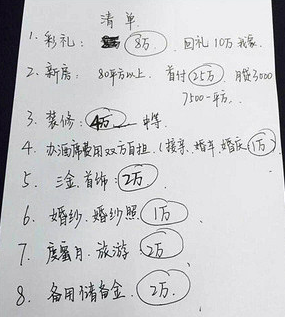 清单
1. 彩礼: 8万 . 回礼10万我家.
2. 新房: 80平方以上. 首付25万 月贷3000
7500一平方.
3. 装修: 4万 中等.
4. 办酒席费用双方自担. (接亲. 婚车. 婚庆 1万)
5. 三金. 首饰: 2万
6. 婚纱. 婚纱照 1万
7. 度蜜月. 旅游 2万
8. 备用储备金. 2万.